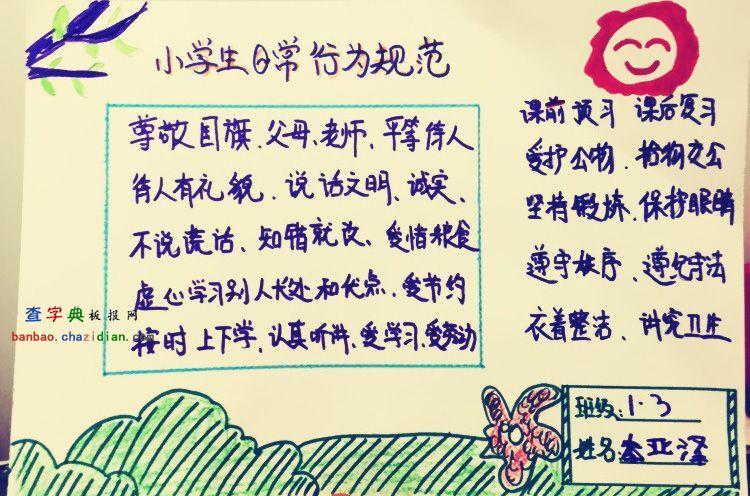 小学生日常行为规范
尊敬国旗、父母、老师、平等待人
待人有礼貌、说话文明、诚实、
不说谎话、知错就改、爱惜粮食
虚心学习别人长处和优点、爱节约
按时上下学、认真听讲、爱学习、爱劳动
课前预习 课后复习
爱护公物、拾物交公
坚持锻炼、保护眼睛
遵守秩序、遵纪守法
衣着整洁、讲究卫生
查字典板报网
banbao.chazidian.com
班级：1.3
姓名 亚泽